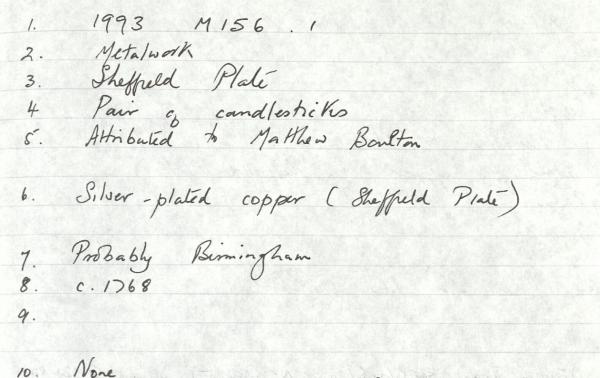 1. 1993 M156 . 1
2. Metalwork
3. Sheffield Plate
4 Pair of candlesticks
5. Attributed to Matthew Boulton
6. Silver-plated copper (Sheffield Plate)
7. Probably Birmingham
8. c. 1768
9.
10. None